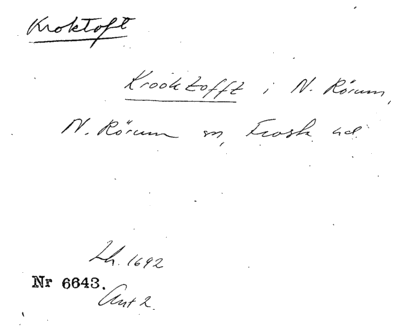 Kroktoft
Krooktofft i N. Rörum,
N. Rörum sn, Frosta hd
Lh. 1692
Nr 6643.
Ant 2.